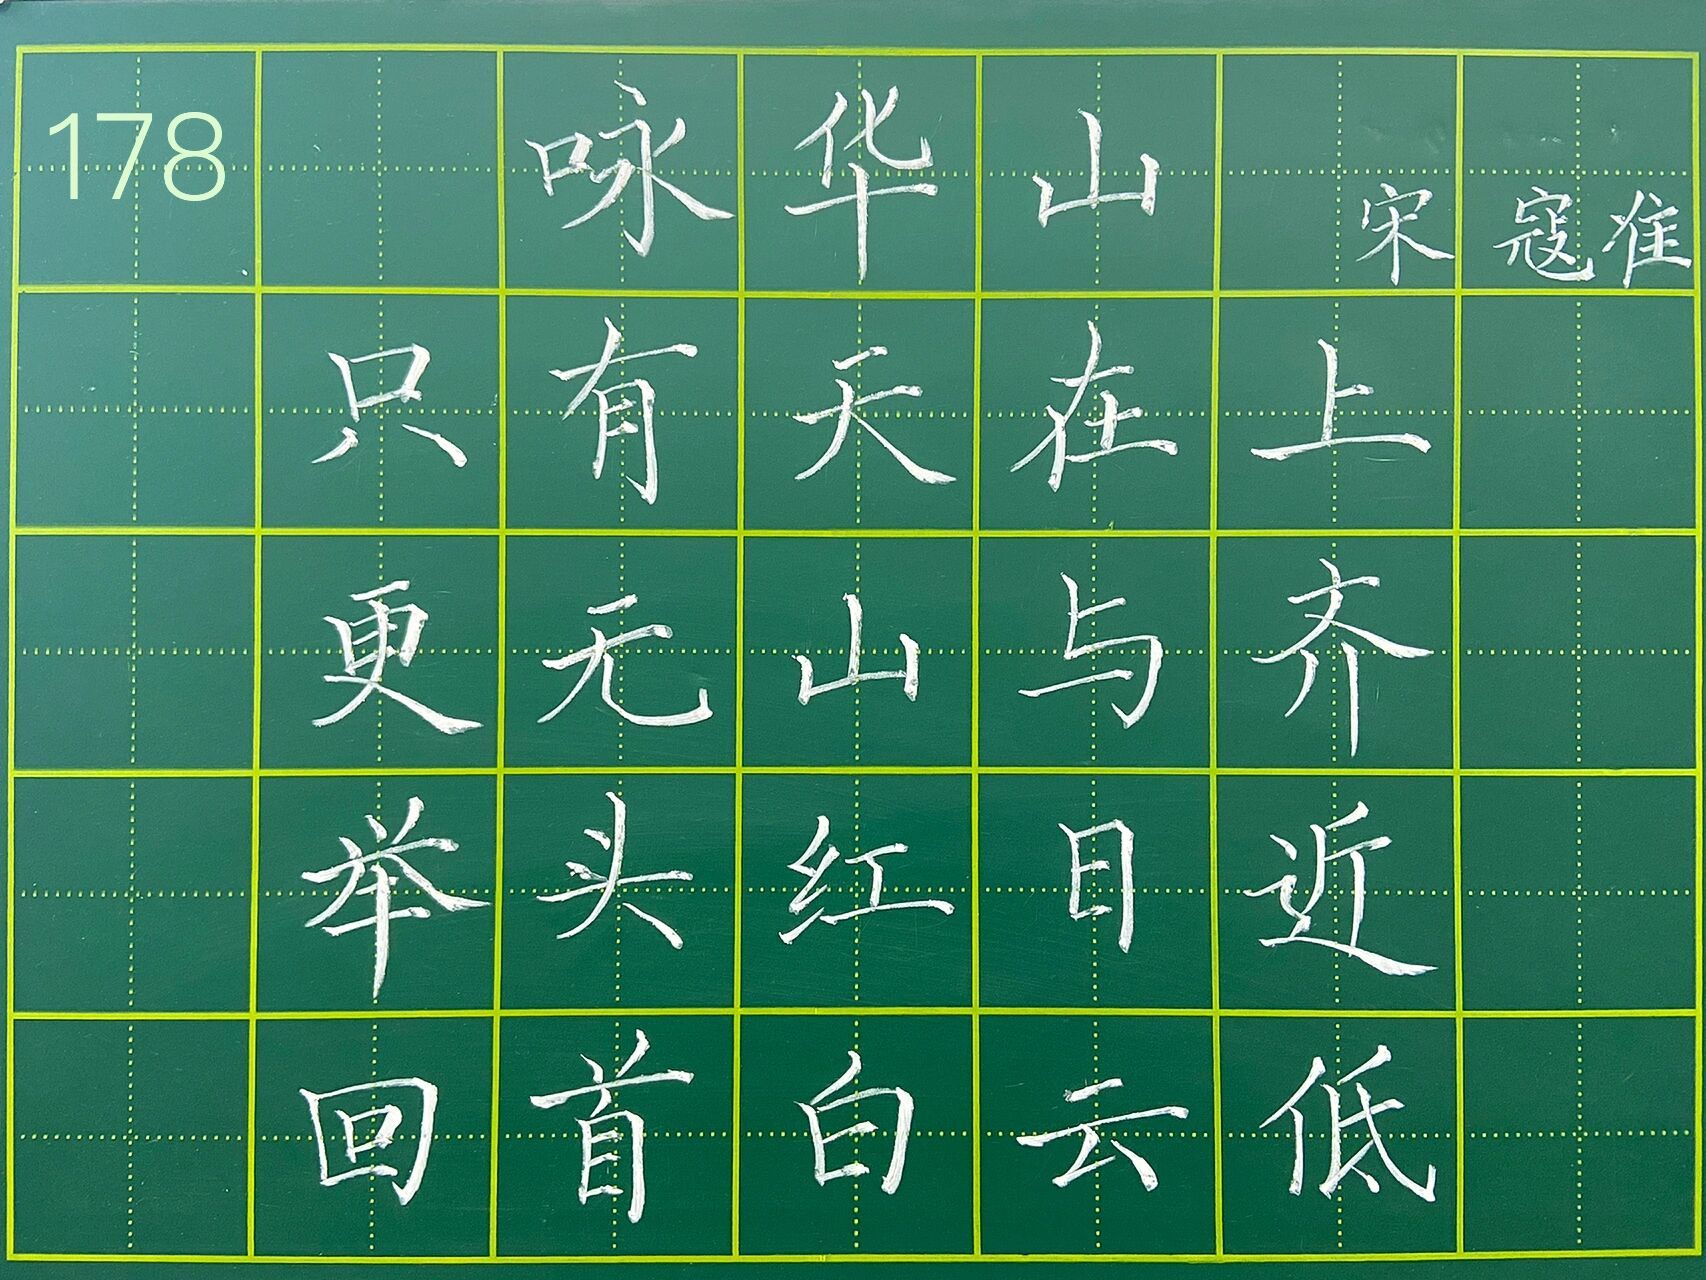 178
咏华山 宋 寇准
只有天在上
更无山与齐
举头红日近
回首白云低